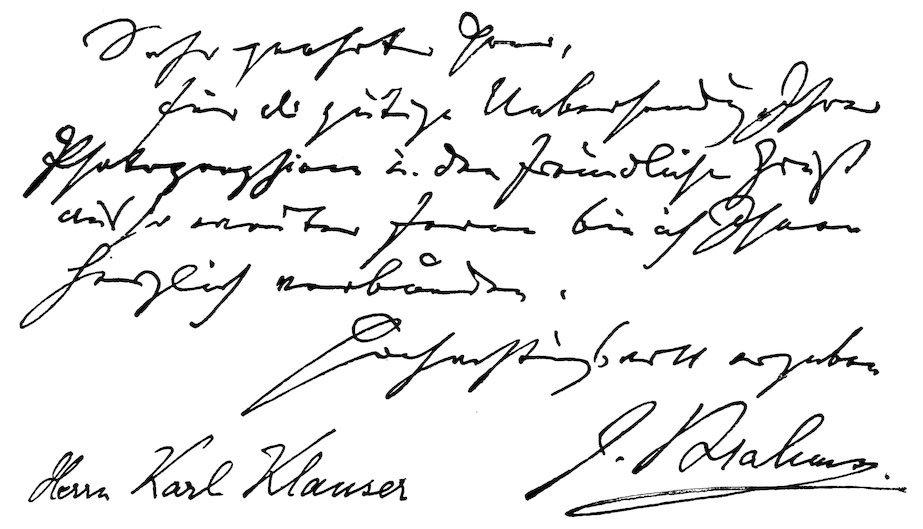 Sehr geehrter Herr,
für die gütige Uebersendung Ihrer
Photographien u. den freundlichen Gruß
aus so weiter Ferne bin ich Ihnen
herzlich verbunden.
Hochachtungsvoll ergeben
J. Brahms.
Herrn Karl Klauser